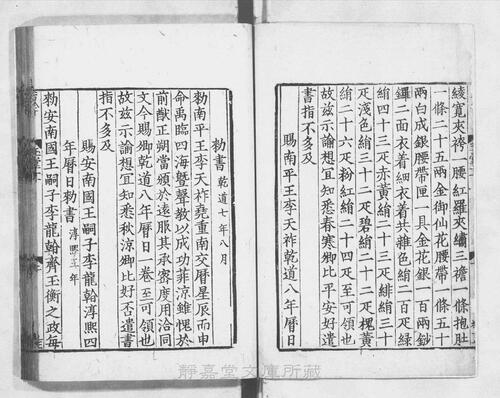 綾寬夾袴一腰紅羅夾繡三襜一條抱肚
一條二十五兩金御仙花腰帶一條五十
兩白成銀腰帶匣一具金花銀一百兩鈔
鑼二面衣着細衣着共雜色絹二百疋綠
絹四十三疋赤黃絹二十三疋緋絹三十
疋淺色絹三十二疋碧絹二十二疋槐黃
絹二十六疋粉紅絹二十四疋至可領也
故兹示諭想宜知悉春寒卿比平安好遣
書指不多及
賜南平王李天祚乾道八年曆日
勑書 乾道七年八月
勑南平王李天祚堯重南交曆星辰而申
命禹臨四海曁聲教以成功菲涼雖愧於
前猷正朔當頒於遠服其承密度用洽同
文今賜卿乾道八年曆日一卷至可領也
故兹示諭想宜知悉秋涼卿比好否遣書
指不多及
賜安南國王嗣子李龍翰淳熙四
年曆日勑書 淳熙三年
勑安南國王嗣子李龍翰齊玉衡之政每
靜嘉堂文庫所藏